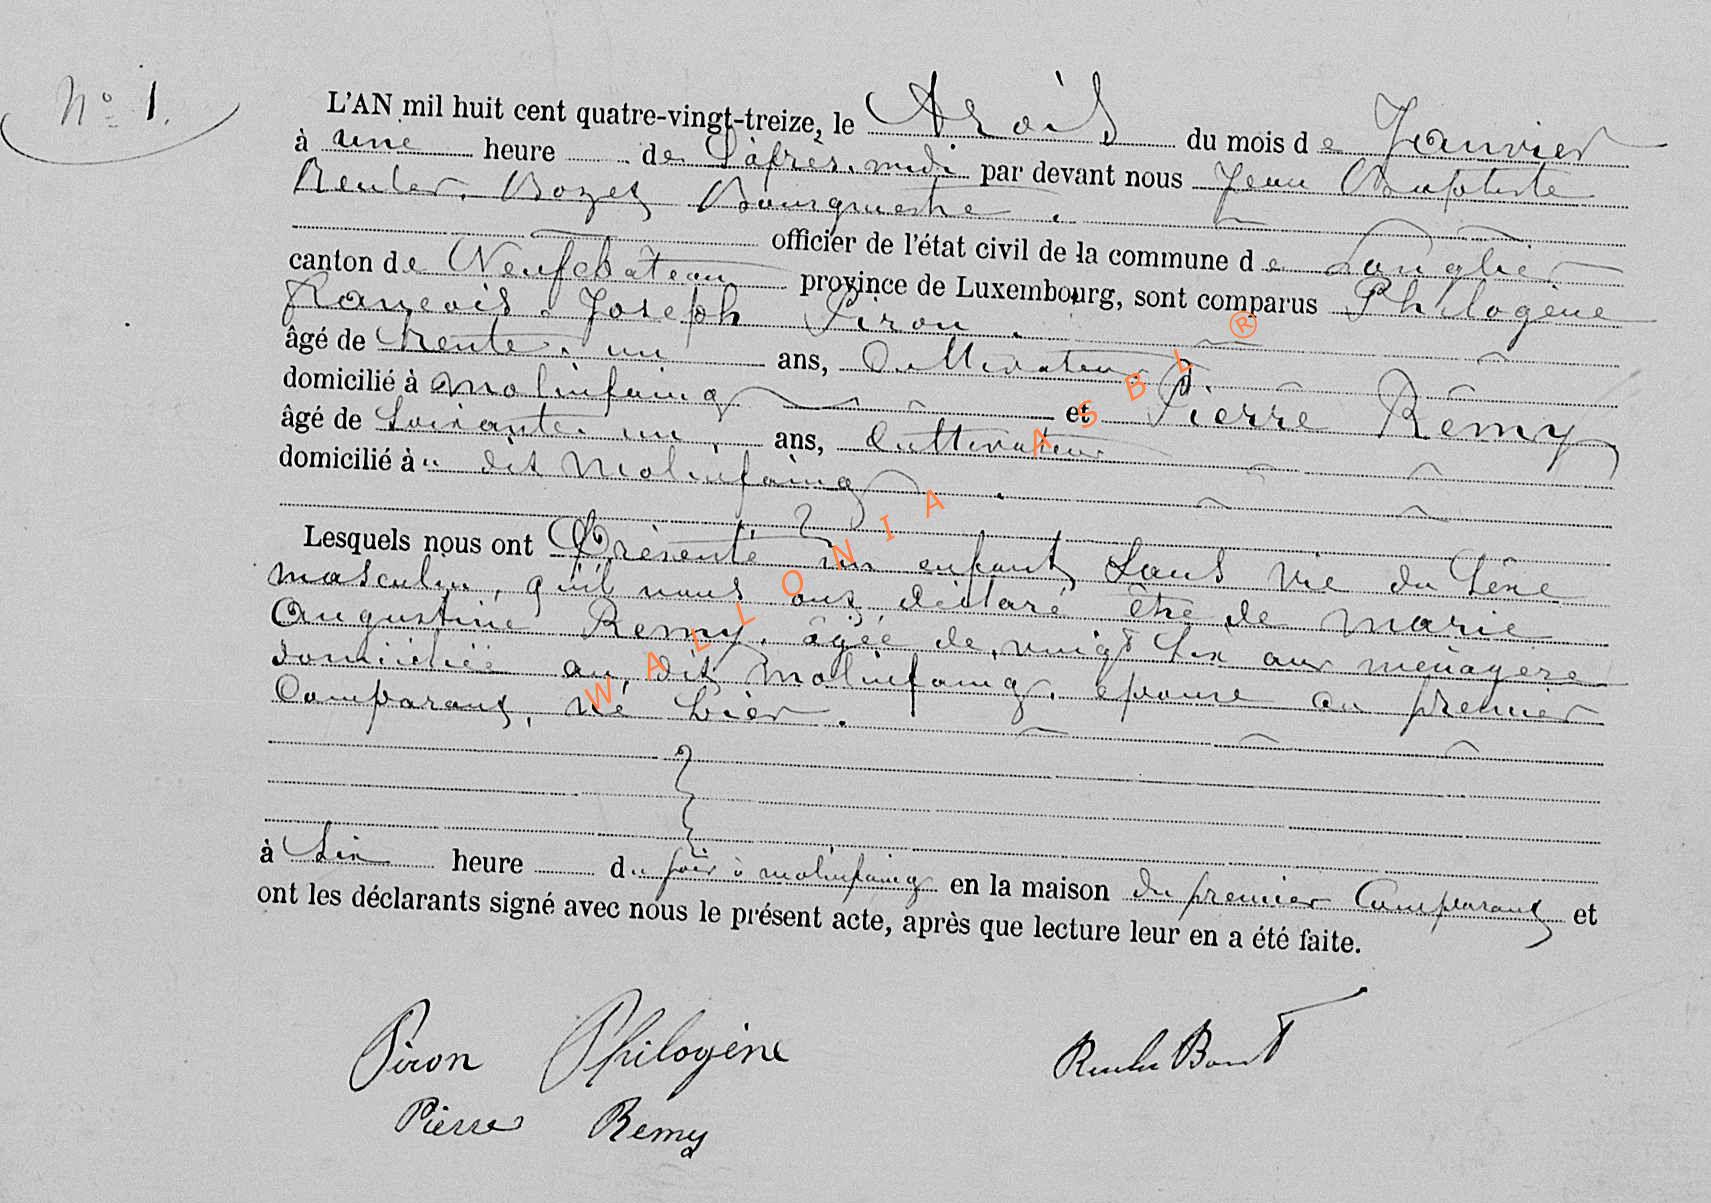 N° 1.
L'AN mil huit cent quatre-vingt-treize, le trois du mois de Janvier
à une heure de l'après-midi par devant nous Jean Baptiste
Reuter, Bourgmestre.
officier de l'état civil de la commune de Longlier
canton de Neufchâteau province de Luxembourg, sont comparus Philogène
François Joseph Piron.
âgé de trente-un ans, Cultivateur
domicilié à molinfaing et Pierre Rémy
âgé de Soixante-un, ans, Cultivateur
domicilié à u dit Molinfaing.
Lesquels nous ont Présenté un enfant Sans vie du Sexe
masculin, qu'il nous ont déclaré être de marie
Augustine Remy, âgée de vingt six ans ménagère
domiciliée au dit Molinfaing, épouse au premier
Comparant, né hier.
à Six heure du soir à molinfaing en la maison du premier Comparant et
ont les déclarants signé avec nous le présent acte, après que lecture leur en a été faite.
Piron Philogène
Pierre Remy
WALLONIA ASBL ®